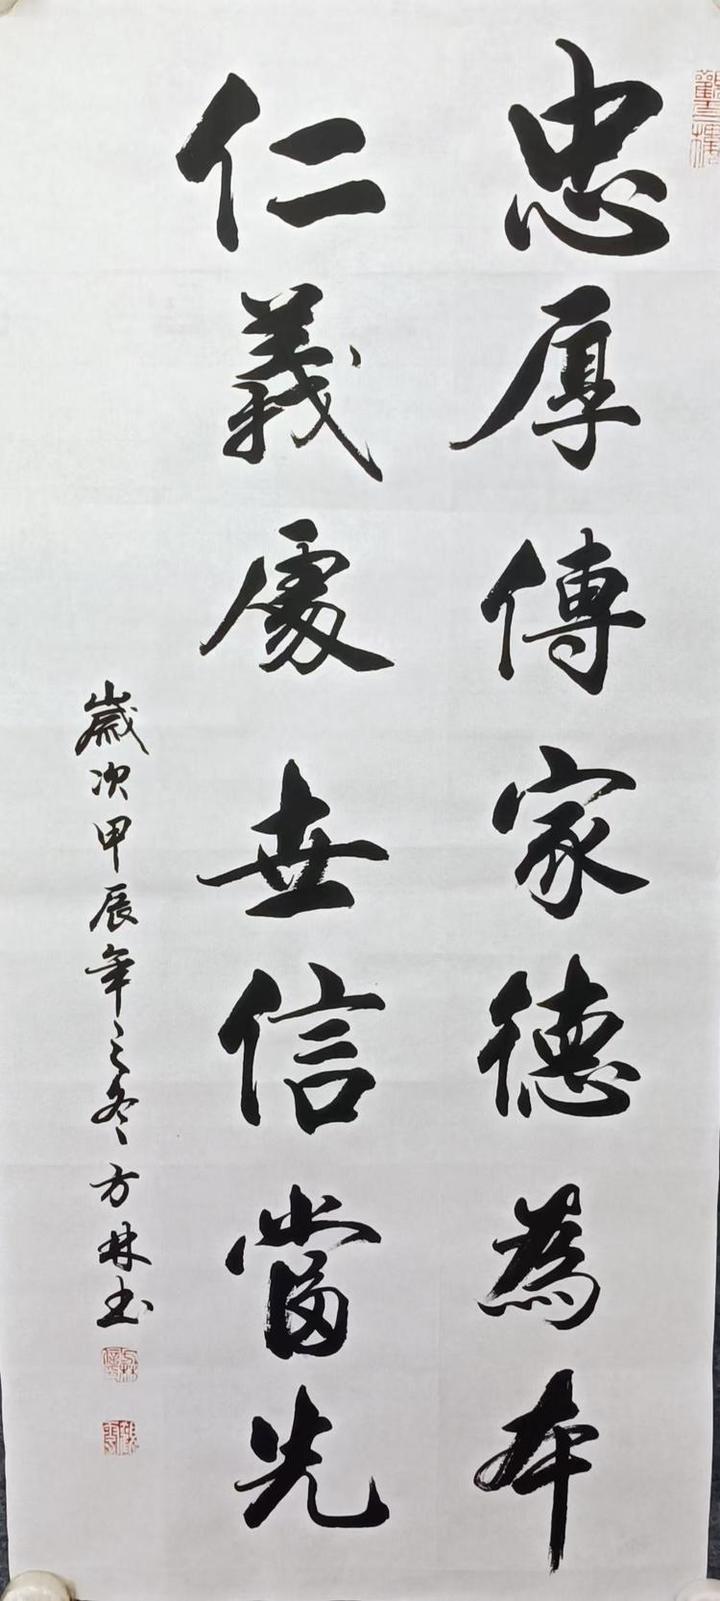 忠厚傳家德為本
仁義處世信當先
歲次甲辰年之冬方林玉